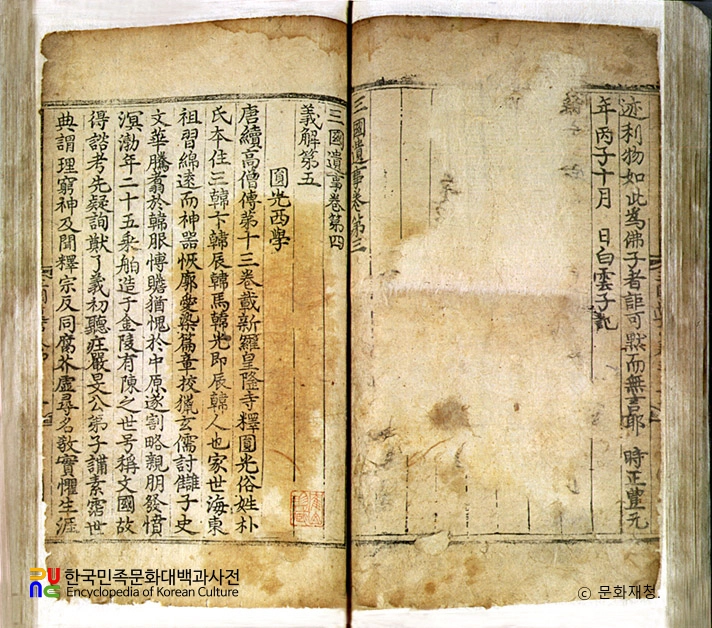 迹利物如此為佛子者詎可默而無言耶 時正豊元
年丙子十月 日白雲子記
三國遺事卷第三
三國遺事卷第四
義解第五
圓光西學
唐續高僧傳第十三卷載新羅皇隆寺釋圓光俗姓朴
氏本住三韓卞韓辰韓馬韓光即辰韓人也家世海東
祖習綿遠而神器恢廓愛染篇章挍獵玄儒討讎子史
文華騰翥於韓服愽贍猶愧於中原遂割略親朋發憤
溟渤年二十五乘舶造于金陵有陳之世号稱文國故
得諮考先疑詢猷了義初聽庄嚴旻公弟子講素霑世
典謂理窮神及聞釋宗反同腐芥虛尋名教實懼生涯
한국민족문화대백과사전
Encyclopedia of Korean Culture
© 문화재청.